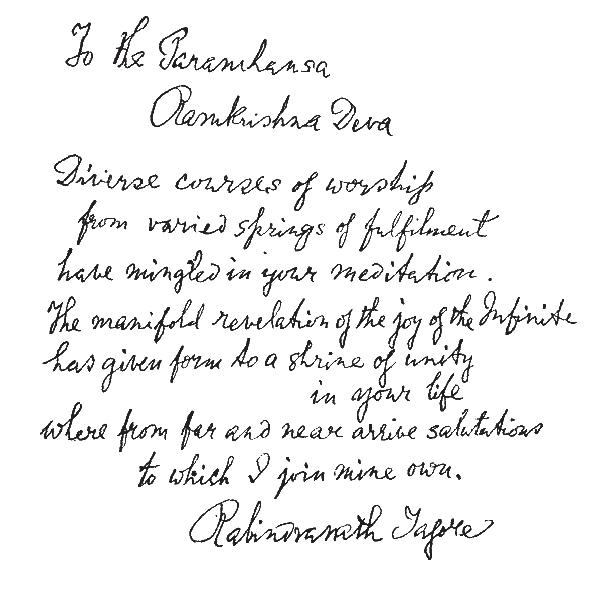 To the Paramhansa
Ramkrishna Deva
Diverse courses of worship
from varied springs of fulfilment
have mingled in your meditation.
The manifold revelation of the joy of the Infinite
has given form to a shrine of unity
in your life
where from far and near arrive salutations
to which I join mine own.
Rabindranath Tagore